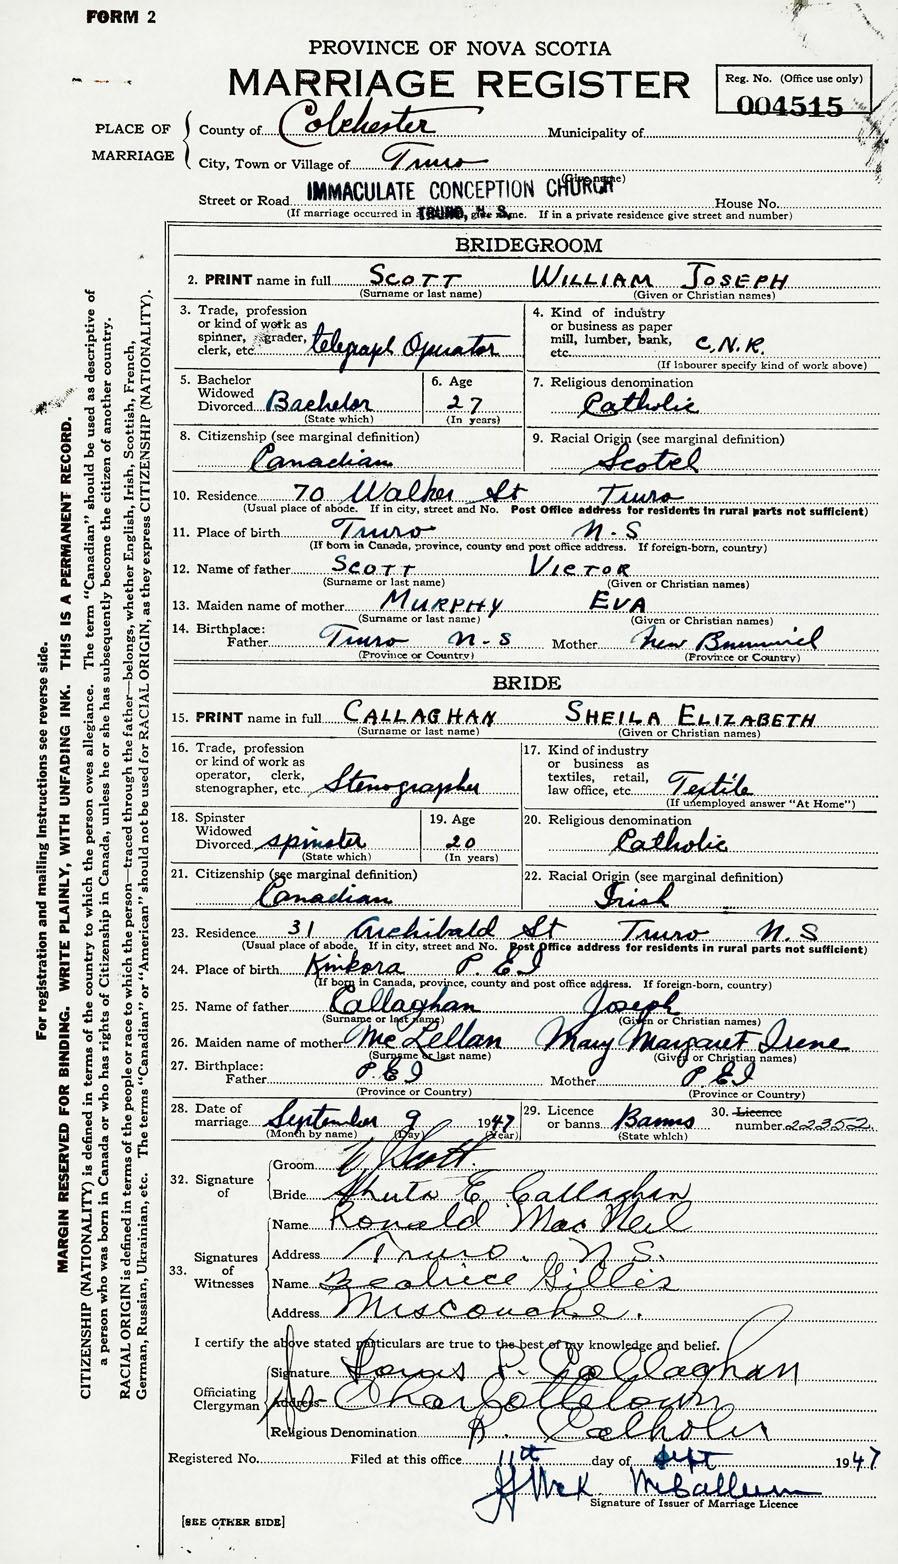 FORM 2
PROVINCE OF NOVA SCOTIA
MARRIAGE REGISTER
Reg. No. (Office use only)
004515
PLACE OF MARRIAGE
County of Colchester Municipality of
City, Town or Village of Truro
(Give name)
Street or Road IMMACULATE CONCEPTION CHURCH House No.
TRURO, N. S.
(If marriage occurred in give name. If in a private residence give street and number)
BRIDEGROOM
2. PRINT name in full SCOTT WILLIAM JOSEPH
(Surname or last name) (Given or Christian names)
3. Trade, profession
or kind of work as
spinner, grader,
clerk, etc. telegraph Operator
4. Kind of industry
or business as paper
mill, lumber, bank,
etc. C.N.R.
(If labourer specify kind of work above)
5. Bachelor
Widowed
Divorced Bachelor
(State which)
6. Age
27
(In years)
7. Religious denomination
Catholic
8. Citizenship (see marginal definition)
Canadian
9. Racial Origin (see marginal definition)
Scotch
10. Residence 70 Walker St Truro
(Usual place of abode. If in city, street and No. Post Office address for residents in rural parts not sufficient)
11. Place of birth Truro N-S
(If born in Canada, province, county and post office address. If foreign-born, country)
12. Name of father SCOTT VICTOR
(Surname or last name) (Given or Christian names)
13. Maiden name of mother MURPHY EVA
(Surname or last name) (Given or Christian names)
14. Birthplace:
Father Truro N-S Mother New Brunswick
(Province or Country) (Province or Country)
BRIDE
15. PRINT name in full CALLAGHAN SHEILA ELIZABETH
(Surname or last name) (Given or Christian names)
16. Trade, profession
or kind of work as
operator, clerk,
stenographer, etc. Stenographer
17. Kind of industry
or business as
textiles, retail,
law office, etc. Textile
(If unemployed answer "At Home")
18. Spinster
Widowed
Divorced spinster
(State which)
19. Age
20
(In years)
20. Religious denomination
Catholic
21. Citizenship (see marginal definition)
Canadian
22. Racial Origin (see marginal definition)
Irish
23. Residence 31 Archibald St Truro N.S
(Usual place of abode. If in city, street and No. Post Office address for residents in rural parts not sufficient)
24. Place of birth Kinkora P.E.I
(If born in Canada, province, county and post office address. If foreign-born, country)
25. Name of father Callaghan Joseph
(Surname or last name) (Given or Christian names)
26. Maiden name of mother McLellan Mary Margaret Irene
(Surname or last name) (Given or Christian names)
27. Birthplace:
Father P.E.I Mother P.E.I
(Province or Country) (Province or Country)
28. Date of
marriage September 9 1947
(Month by name) (Day) (Year)
29. Licence
or banns Banns
(State which)
30. Licence
number 22352
32. Signature of
Groom Scott
Bride E. Callaghan
33. Signatures of Witnesses
Name Ronald MacNeil
Address Truro. N.S.
Name Beatrice Gillis
Address Miscouche.
I certify the above stated particulars are true to the best of my knowledge and belief.
Officiating Clergyman
Signature Louis P. Callaghan
Address Charlottetown
Religious Denomination R. Catholic
Registered No. Filed at this office 11th day of Sept 1947
McCallum
Signature of Issuer of Marriage Licence
[SEE OTHER SIDE]
For registration and mailing instructions see reverse side.
MARGIN RESERVED FOR BINDING. WRITE PLAINLY, WITH UNFADING INK. THIS IS A PERMANENT RECORD.
CITIZENSHIP (NATIONALITY) is defined in terms of the country to which the person owes allegiance. The term "Canadian" should be used as descriptive of
a person who was born in Canada or who has rights of Citizenship in Canada, unless he or she has subsequently become the citizen of another country.
RACIAL ORIGIN is defined in terms of the people or race to which the person—traced through the father—belongs, whether English, Irish, Scottish, French,
German, Russian, Ukrainian, etc. The terms "Canadian" or "American" should not be used for RACIAL ORIGIN, as they express CITIZENSHIP (NATIONALITY).